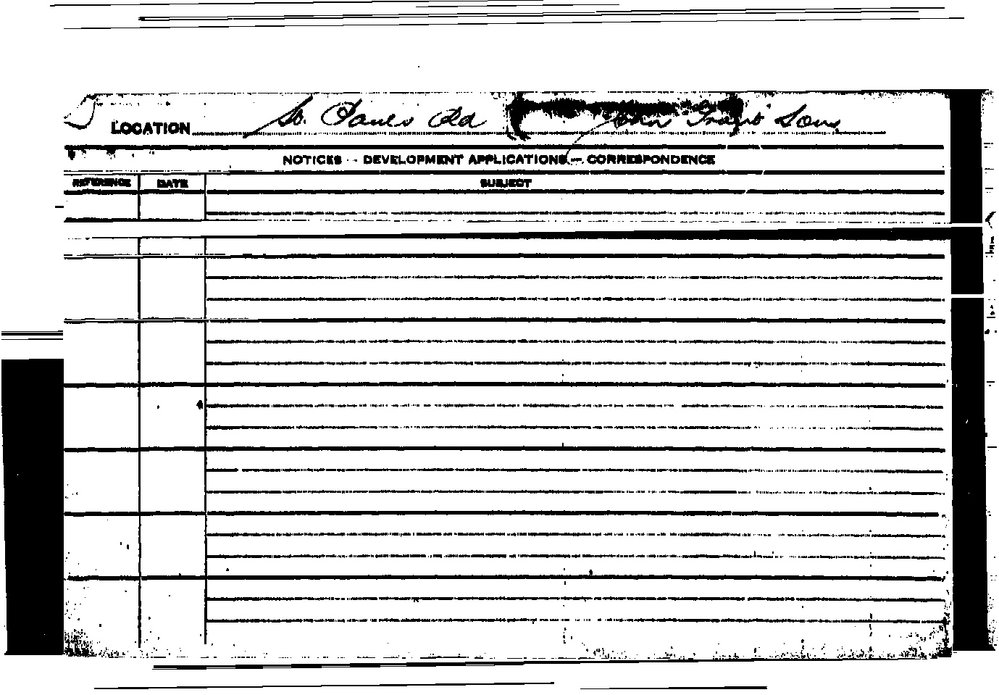 LOCATION St. Pauls Rd John Grant Sons
NOTICES - - DEVELOPMENT APPLICATIONS — CORRESPONDENCE
REFERENCE DATE SUBJECT